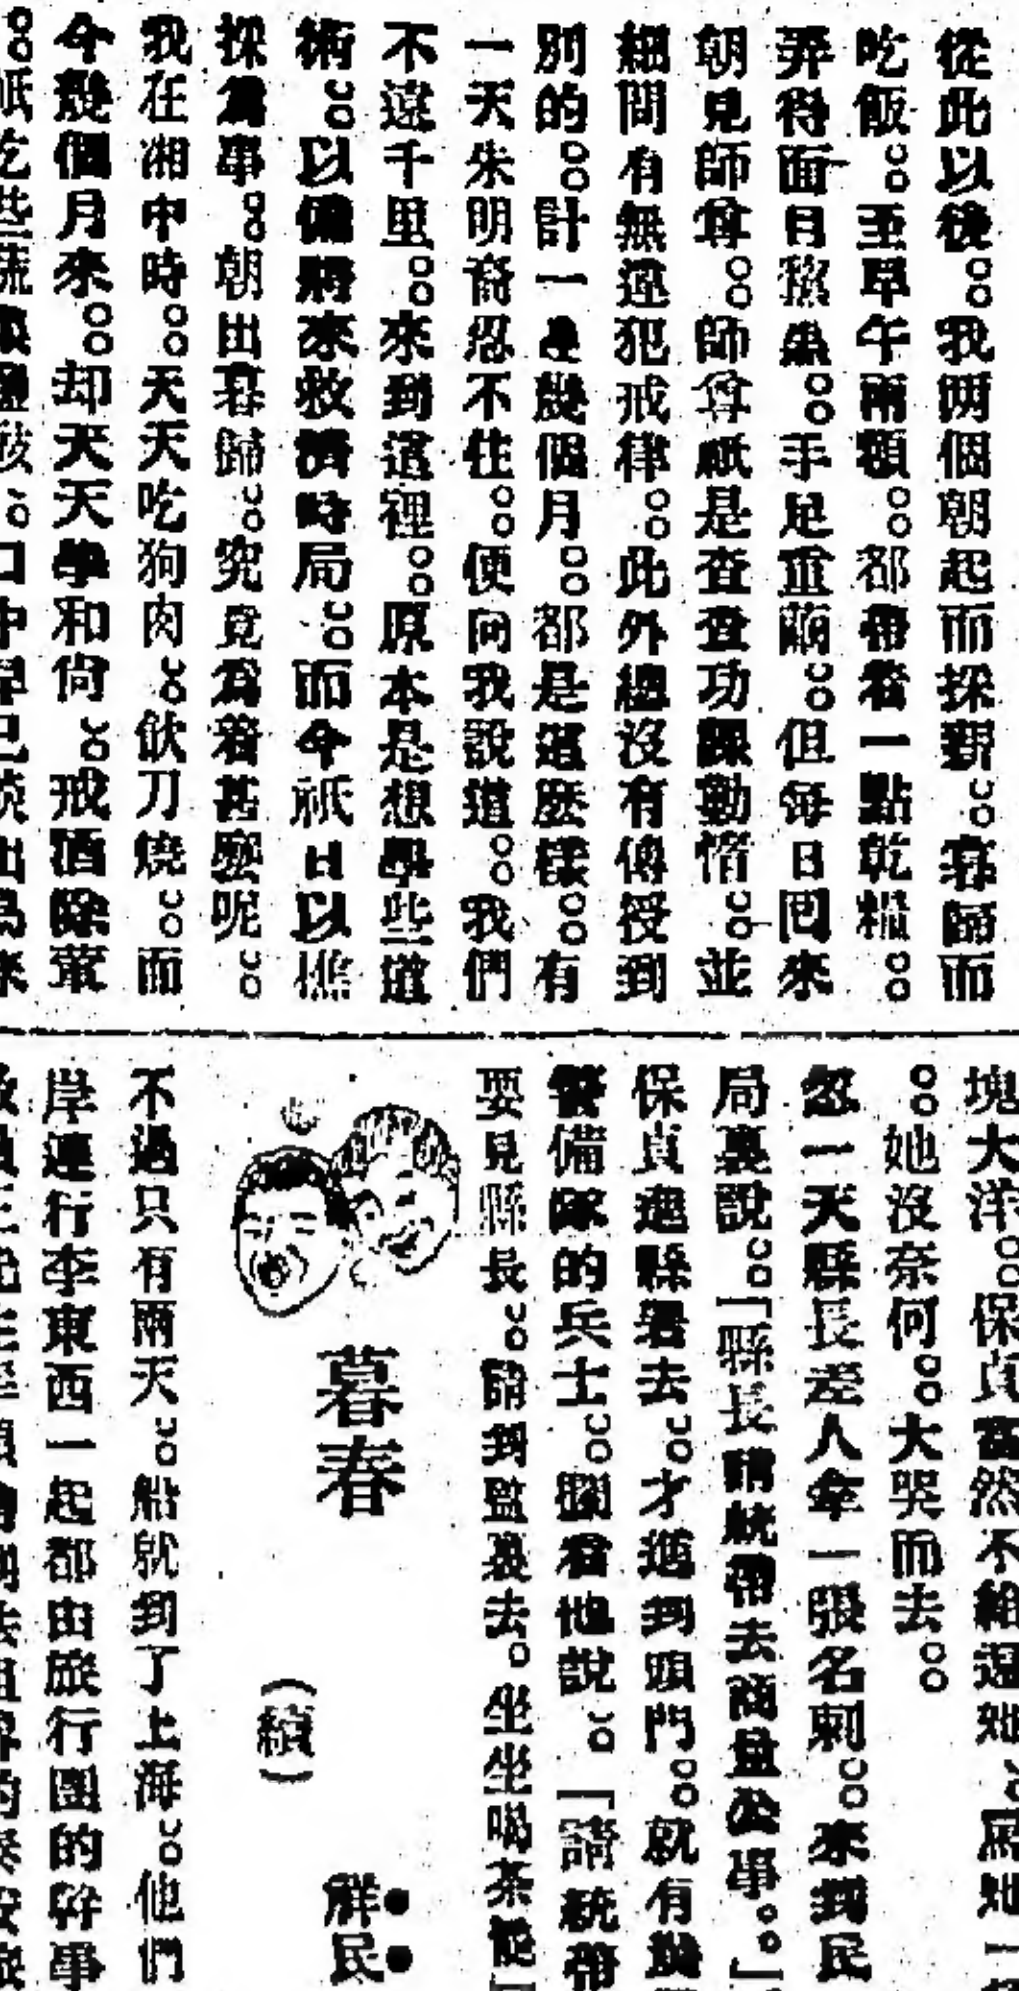 從此以後。。我两個朝起而採薪。。暮歸而
吃飯。。至早午兩頓。。都帶着一點乾糧。。
弄得面目黧黑。。手足重繭。。但每日回來
朝見師尊。。師尊祇是查查功課勤惰。。並
細問有無違犯戒律。。此外總沒有傳授到
別的。。計一連幾個月。。都是這麽樣。。有
一天朱明裔忍不住。。便向我說道。。我們
不遠千里。。來到這裡。。原本是想學些道
術。。以備將來救濟時局。。而今祇日以樵
採爲事。。朝出暮歸。。究竟爲着甚麽呢。。
我在湘中時。。天天吃狗肉。。飲刀燒。。而
今幾個月來。。却天天學和尙。。戒酒除葷
。。祇吃些蔬
塊大洋。。保貞當然不給還她。。罵她一
。。她沒奈何。。大哭而去。。
忽一天縣長差人拿一張名刺。。來到民
局裏說。。「縣長請統帶去商量公事。。」
保貞進縣署去。。才進到頭門。。就有幾
警備隊的兵士。。攔着他說。。「請統帶
要見縣長。。請到監裏去。坐坐喝茶罷
暮春
(續)
鮮民
不過只有兩天。。船就到了上海。。他們
岸連行李東西一起都由旅行團的幹事